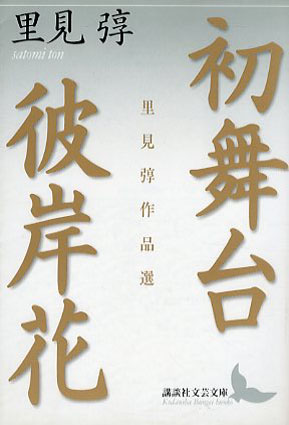 初舞台
彼岸花
里見弴作品選
里見 弴
satomi ton
講談社文芸文庫
Kodansha Bungei bunko